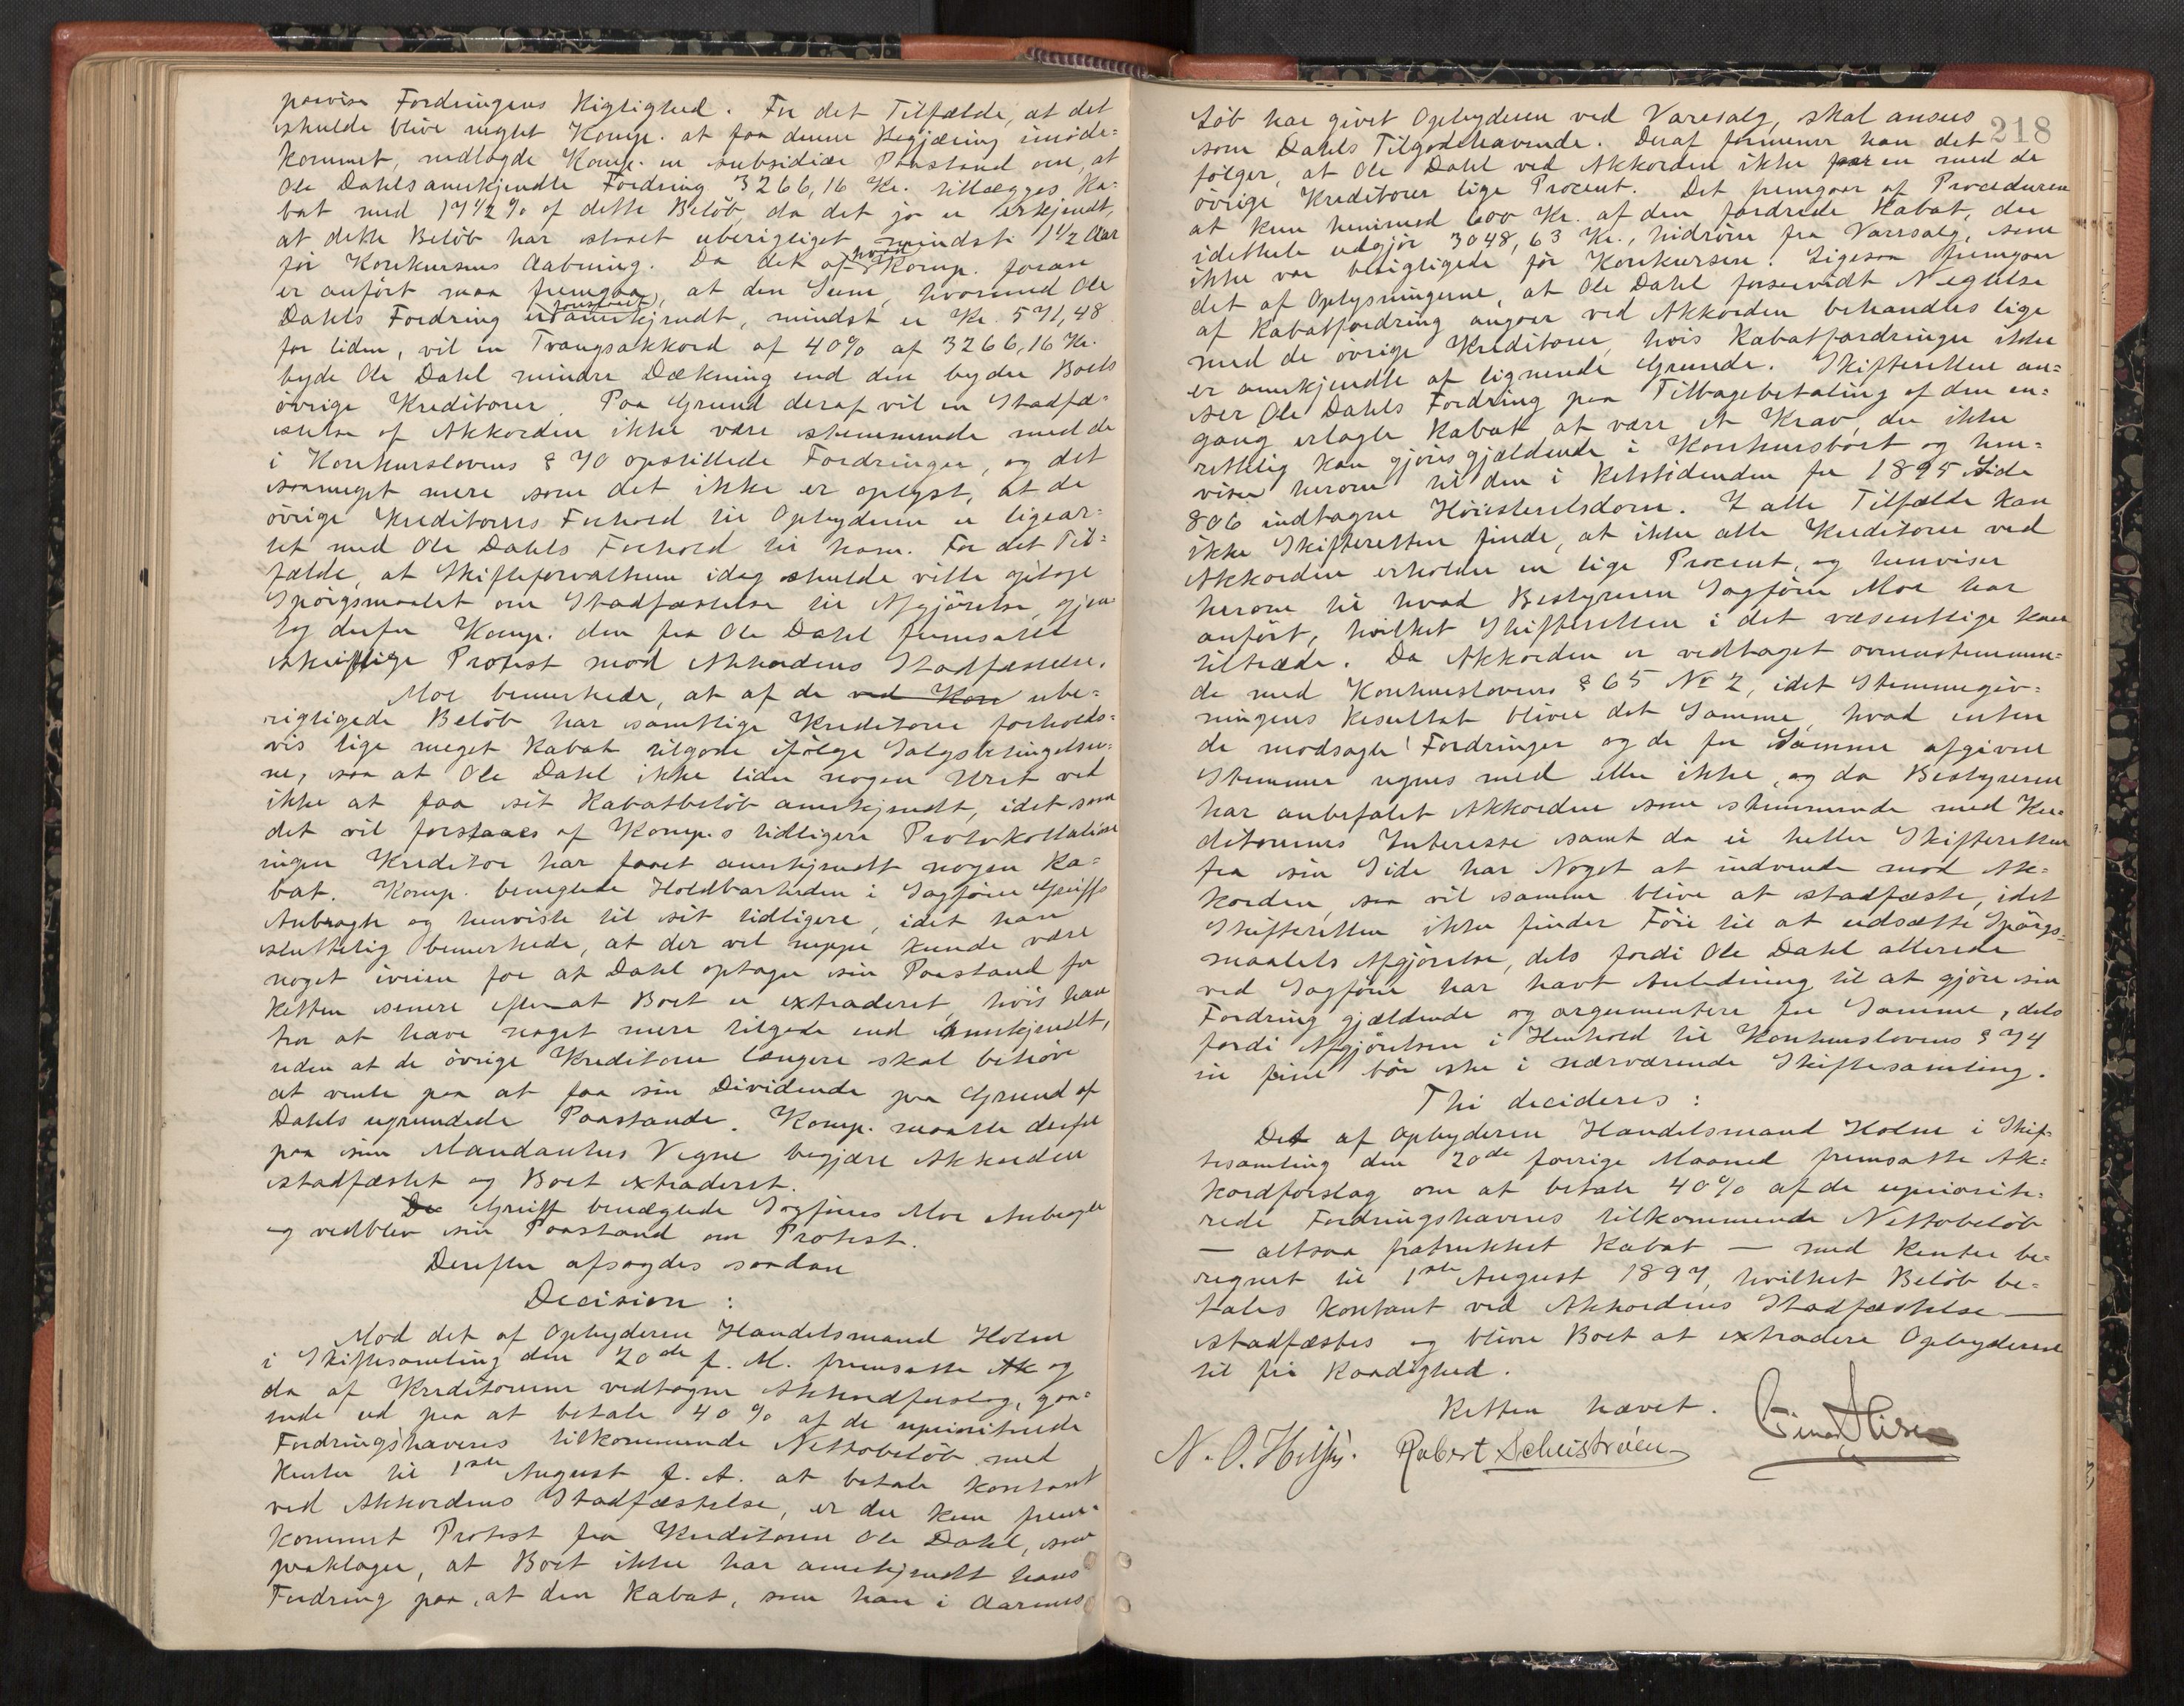 paavise Fordringens Rigtighed. For det Tilfælde, at det
skulde blive negtet Komp. at faa denne Begjæring imøde-
kommet, nedlagde Komp. en subsidiær Paastand om, at
Ole Dahls anerkjendte Fordring 3266,16 Kr. tillægges Ra-
bat med 17 1/2 % af dette Beløb, da det jo er erkjendt,
at dette Beløb har staaet uberigtiget mindst 1 1/2 Aar
før Konkursens Aabning. Da det af hvad Komp. foran
er anført maa fremgaa, at den Sum, hvormed Ole
Dahls Fordring er anerkjendt, mindst er Kr. 571,48
for liden, vil en Tvangsakkord af 40% af 3266,16 Kr.
byde Ole Dahl mindre Dækning end den byder Boets
øvrige Kreditorer. Paa Grund deraf vil en Stadfæ-
stelse af Akkorden ikke være stemmende med de
i Konkurslovens § 70 opstillede Fordringer, og det
saameget mere som det ikke er oplyst, at de
øvrige Kreditorers Forhold til Opbyderen er ligear-
tet med Ole Dahls Forhold til ham. For det Til-
fælde, at Skifteforvalteren idag skulde ville optage
Spørgsmaalet om Stadfæstelse til Afgjørelse, gjen-
tog derfor Komp. den fra Ole Dahl fremsatte
skriftlige Protest mod Akkordens Stadfæstelse.
Moe bemerkede, at af de ved Kon ube-
rigtigede Beløb har samtlige Kreditorer forholds-
vis lige meget Rabat tilgode ifølge Salgsbetingelser-
ne, saa at Ole Dahl ikke lider nogen Uret ved
ikke at faa sit Rabatbeløb anerkjendt, idet som
det vil forstaaes af Komp.s tidligere Protokollation
ingen Kreditor har faaet anerkjendt nogen Ra-
bat. Komp. benegtede Holdbarheden i Sagfører Griffs
Anbragte og henviste til sit tidligere, idet han
sluttelig bemerkede, at der vel neppe kunde være
noget iveien for at Dahl optager sin Paastand for
Retten senere efterat Boet er extraderet, hvis han
tror at have noget mere tilgode end anerkjendt,
uden at de øvrige Kreditorer længere skal behøve
at vente paa at faa sin Dividende paa Grund af
Dahls ugrundede Paastande. Komp. maatte derfor
paa sine Mandanters Vegne begjære Akkorden
stadfæstet og Boet extraderet.
De Griff benægtede Sagfører Moe Anbragte
og vedblev sin Paastand om Protest.
Derefter afsagdes saadan
Decision:
Mod det af Opbyderen Handelsmand Holm
i Skiftesamling den 20de f. M. fremsatte Ak og
da af Kreditorerne vedtagne Akkordforslag, gaa-
ende ud paa at betale 40% af de uprioriterede
Fordringshaveres tilkommende Nettobeløb med
Renter til 1ste August f. A. at betale kontant
ved Akkordens Stadfæstelse, er der kun frem-
kommet Protest fra Kreditoren Ole Dahl, som
paaklager, at Boet ikke har anerkjendt hans
Fordring paa, at den Rabat, som han i Aarenes
218
Løb har givet Opbyderen ved Varesalg, skal ansees
som Dahls Tilgodehavende. Deraf formener han det
følger, at Ole Dahl ved Akkorden ikke faar en med de
øvrige Kreditorer lige Procent. Det fremgaar af Proceduren
at kun henimod 600 Kr. af den fordrede Rabat, der
idethele udgjør 3048,63 Kr., hidrører fra Varesalg, som
ikke var berigtigede før Konkursen. Ligesaa fremgaar
det af Oplysningerne, at Ole Dahl forsaavidt Negtelse
af Rabatfordring angaar ved Akkorden behandles lige
med de øvrige Kreditorer, hvis Rabatfordringer ikke
er anerkjendte af lignende Grunde. Skifteretten an-
ser Ole Dahls Fordring paa Tilbagebetaling af den en-
gang erlagte Rabat at være et Krav, der ikke
rettelig kan gjøres gjældende i Konkursboet og hen-
viser herom til den i Retstidenden for 1895 Side
806 indtagne Høiesteretsdom. I alle Tilfælde kan
ikke Skifteretten finde, at ikke alle Kreditorer ved
Akkorden erholder en lige Procent, og henviser
herom til hvad Bestyreren Sagfører Moe har
anført, hvilket Skifteretten i det væsentlige kan
tiltræde. Da Akkorden er vedtaget overensstemmen-
de med Konkurslovens § 65 No 2, idet Stemmegiv-
ningens Resultat bliver det Samme, hvad enten
de modsagte Fordringer og de for Samme afgivne
Stemmer regnes med eller ikke, og da Bestyreren
har anbefalet Akkorden som stemmende med Kre-
ditorernes Interesse samt da ei heller Skifteretten
fra sin Side har Noget at indvende mod Ak-
korden, saa vil samme blive at stadfæste, idet
Skifteretten ikke finder Føie til at udsætte Spørgs-
maalets Afgjørelse, dels fordi Ole Dahl allerede
ved Sagfører har havt Anledning til at gjøre sin
Fordring gjældende og argumentere for Samme, dels
fordi Afgjørelsen i Henhold til Konkurslovens § 74
in fine bør ske i nærværende Skiftesamling.
Thi decideres:
Det af Opbyderen Handelsmand Holm i Skif-
tesamling den 20de forrige Maaned fremsatte Ak-
kordforslag om at betale 40% af de uprioriter-
rede Fordringshaveres tilkommende Nettobeløb
— altsaa fratrukket Rabat — med Renter be-
regnet til 1ste August 1897, hvilket Beløb be-
tales kontant ved Akkordens Stadfæstelse —
stadfæstes og bliver Boet at extradere Opbyderen
til fri Raadighed.
Retten hævet.
N. O. Robert Scheistrøen